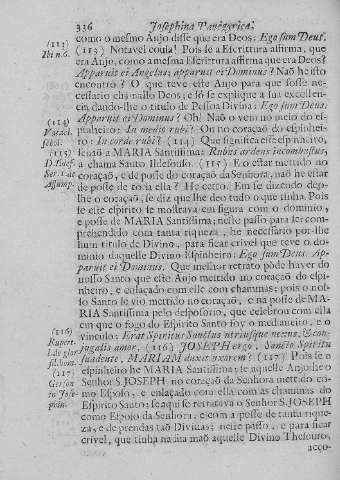 336 Josephina Panegyrica.
como o mesmo Anjo disse que era Deos: Ego sum Deus.
(113) Notavel cousa! Pois se a Escrittura affirma, que
era Anjo, como a mesma Escrittura affirma que era Deos?
Apparuit ei Angelus; apparuit ei Dominus? Naõ he isto
encontro? O que teve este Anjo para que fosse ne-
cessario chamallo Deos; e só se explique a sua excellen-
cia dando-lhe o titulo de Pessoa Divina: Ego sum Deus.
Apparuit ei Dominus? Oh! Naõ o vem no meio do es-
pinheiro: In medio rubi? Ou no coraçaõ do espinhei-
ro: In corde rubi? (114) Que significa este espinheiro,
senaõ a MARIA Santissima: Rubus ardens incombustus;
a chama Santo Ildefonso. (115) E o estar metido no
coraçaõ, e de posse do coraçaõ da Senhora, naõ he estar
de posse de toda ella? He certo. Em se dizendo dep-
lhe o coraçaõ, se diz que lhe deo tudo o que tinha. Pois
se este espirito se mostrava em figura com o dominio,
e posse de MARIA Santissima; neste passo para ser com-
prehendido com tanta riqueza, he necessario pór-lhe
hum titulo de Divino, para ficar crivel que teve o do-
minio daquelle Divino Espinheiro: Ego sum Deus. Ap-
paruit ei Dominus. Que melhor retrato póde haver do
nosso Santo que este Anjo metido no coraçaõ do espi-
nheiro, e enlaçado com elle com chammas; pois o nos-
so Santo se vio metido no coraçaõ, e na posse de MA-
RIA Santissima pelo desposorio, que celebrou com ella
em que o fogo do Espirito Santo foy o medianeiro, e o
vinculo: Erat Spiritus Sanctus utriusque nexus, & con-
jugalis amor. (116) JOSEPH ergo, Sancto Spiritu
suadente, MARIAM duxit uxorem? (117) Pois se o
espinheiro he MARIA Santissima; se aquelle Anjo he o
Senhor S. JOSEPH no coraçaõ da Senhora metido co-
mo Esposo, e enlaçado com ella com as chammas do
Espirito Santo: se aqui se retratava o Senhor S. JOSEPH
como Esposo da Senhora, e com a posse de tanta rique-
za, e de prendas taõ Divinas; neste passo, e para ficar
crivel, que tinha na sua maõ aquelle Divino Thesouro,
acço-
(113)
Ibi n.6.
(114)
(115)
Ser. 1. de
Assump.
(116)
Rupert.
(117)
Gerson